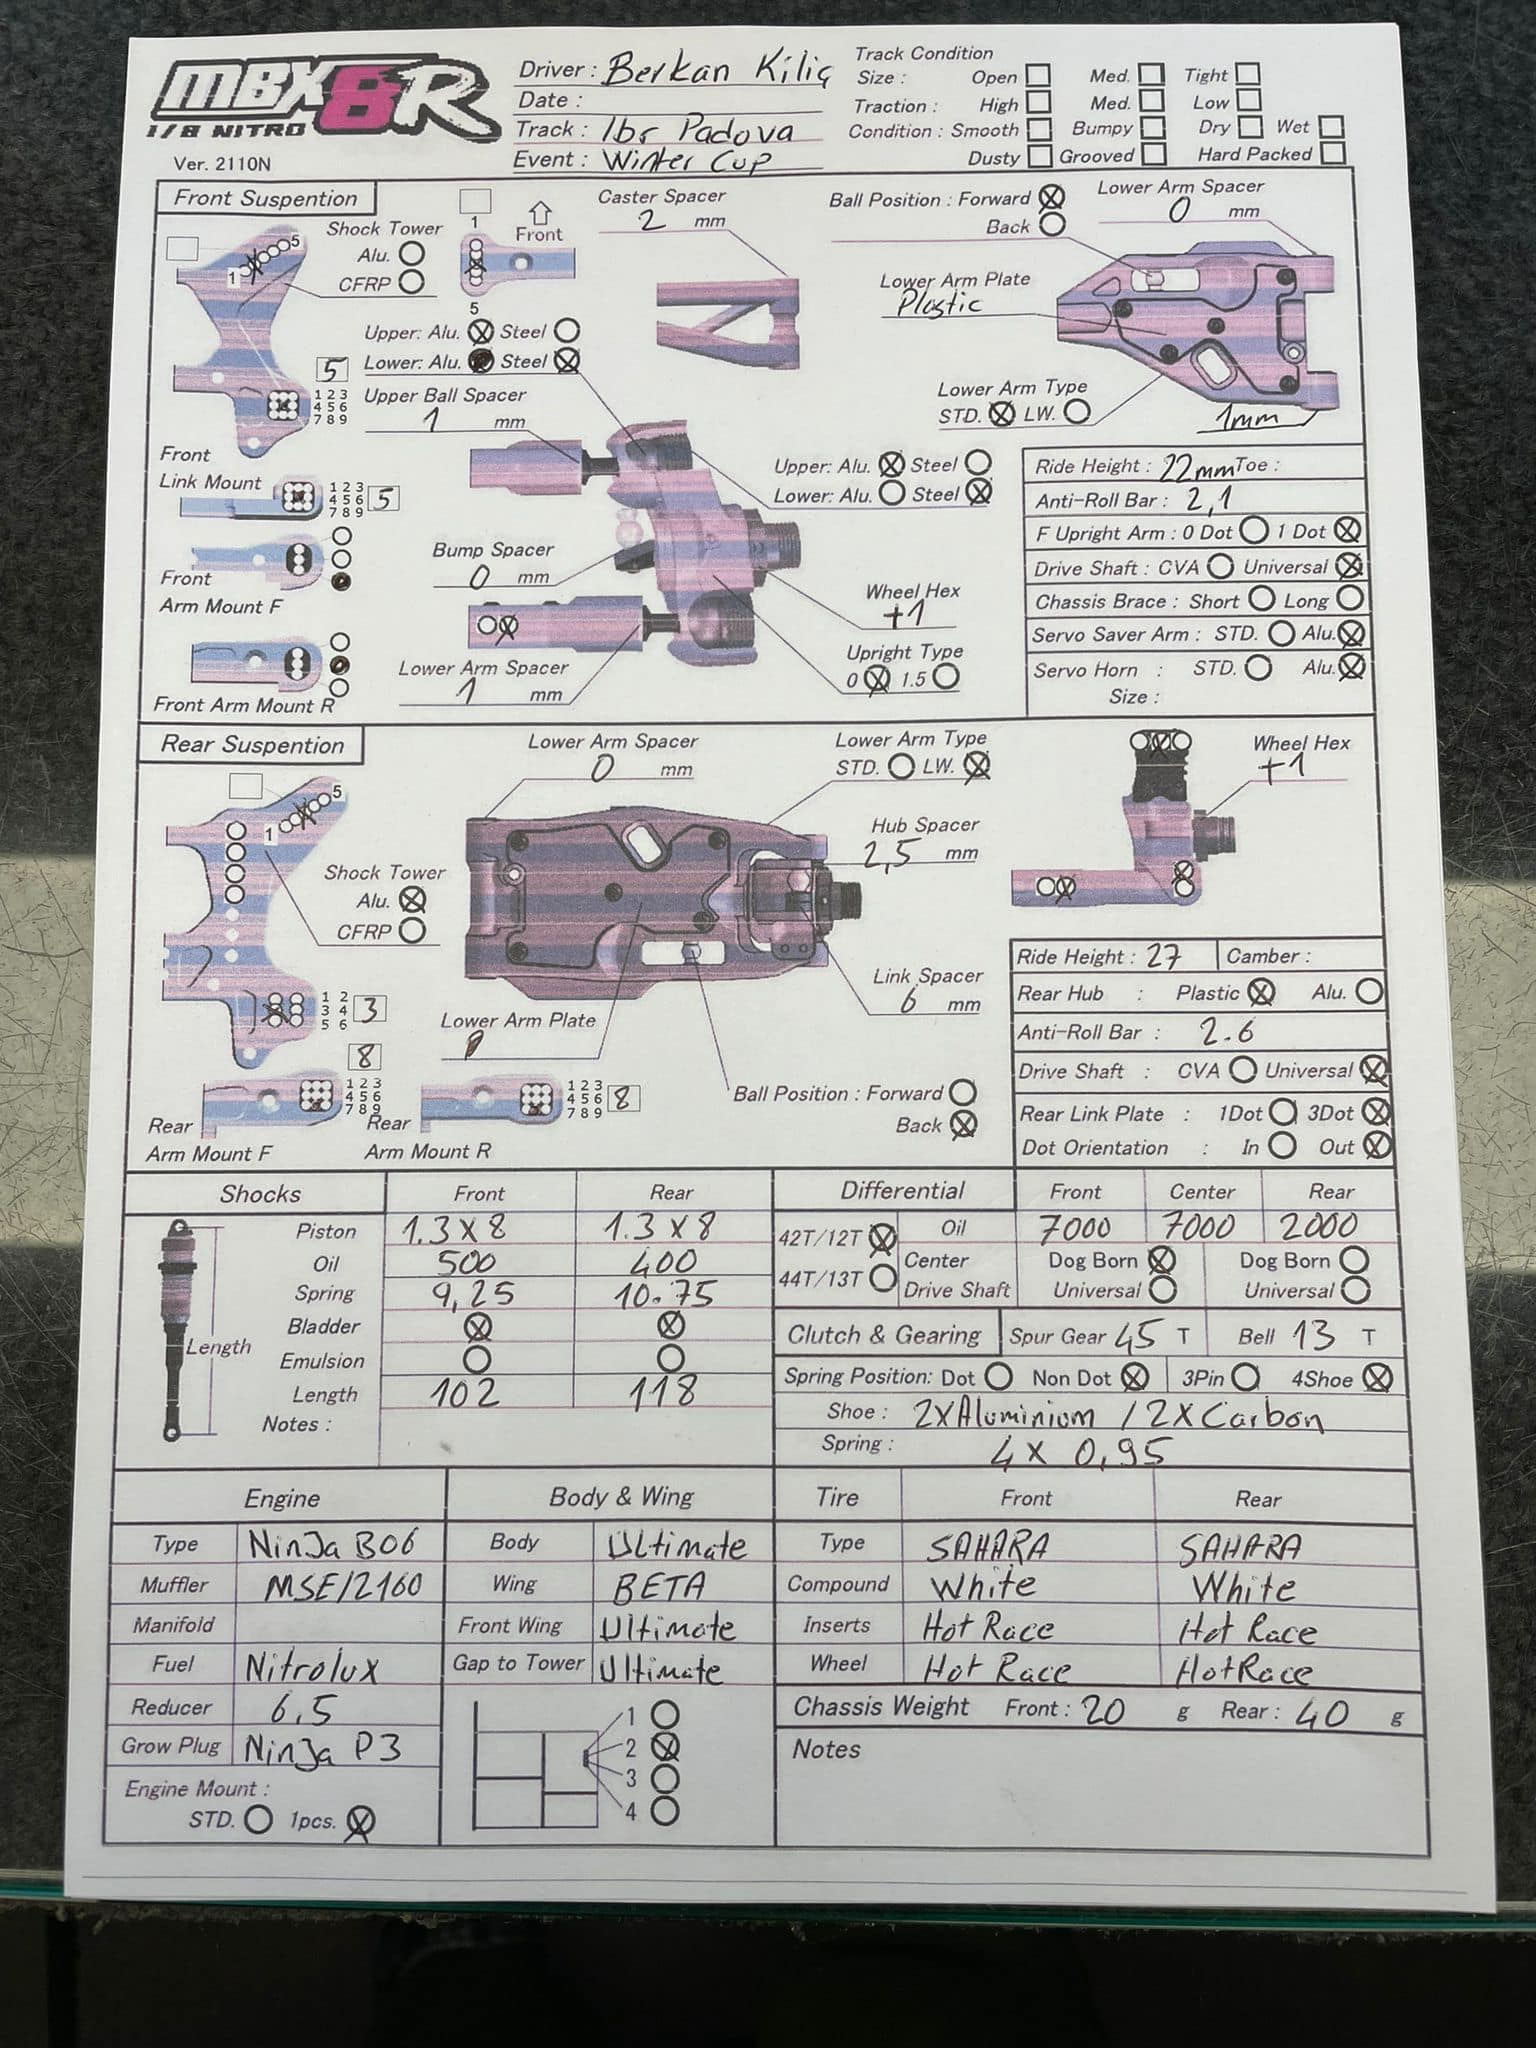 MBX8R
1/8 NITRO
Ver. 2110N
Driver : Berkan Kiliç
Date :
Track : Ibr Padova
Event : Winter Cup
Track Condition
Size : Open Med. Tight
Traction : High Med. Low
Condition : Smooth Bumpy Dry Wet
Dusty Grooved Hard Packed
Front Suspention
Shock Tower
Alu.
CFRP
1 5
1
Front
5
Caster Spacer
2 mm
Ball Position : Forward
Back
Lower Arm Spacer
0 mm
Lower Arm Plate
Plastic
Lower Arm Type
STD. LW.
1mm
Upper: Alu. Steel
Lower: Alu. Steel
Upper Ball Spacer
1 mm
5
1 2 3
4 5 6
7 8 9
Front
Link Mount
1 2 3
4 5 6
7 8 9
5
Front
Arm Mount F
Front Arm Mount R
Upper: Alu. Steel
Lower: Alu. Steel
Bump Spacer
0 mm
Wheel Hex
+1
Lower Arm Spacer
1 mm
Upright Type
0 1.5
Ride Height : 22mm Toe :
Anti-Roll Bar : 2,1
F Upright Arm : 0 Dot 1 Dot
Drive Shaft : CVA Universal
Chassis Brace : Short Long
Servo Saver Arm : STD. Alu.
Servo Horn : STD. Alu.
Size :
Rear Suspention
1 5
Shock Tower
Alu.
CFRP
Lower Arm Spacer
0 mm
Lower Arm Type
STD. LW.
Hub Spacer
2,5 mm
Wheel Hex
+1
Link Spacer
6 mm
Lower Arm Plate
Ball Position : Forward
Back
1 2
3 4
5 6
3
8
1 2 3
4 5 6
7 8 9
Rear
Arm Mount F
1 2 3
4 5 6
7 8 9
8
Rear
Arm Mount R
Ride Height : 27 Camber :
Rear Hub : Plastic Alu.
Anti-Roll Bar : 2.6
Drive Shaft : CVA Universal
Rear Link Plate : 1Dot 3Dot
Dot Orientation : In Out
Shocks Front Rear
Piston 1.3 x 8 1.3 x 8
Oil 500 400
Spring 9,25 10.75
Bladder
Emulsion
Length 102 118
Notes :
Length
Differential Front Center Rear
42T/12T Oil 7000 7000 2000
44T/13T
Center
Drive Shaft
Dog Born Dog Born
Universal Universal
Clutch & Gearing Spur Gear 45 T Bell 13 T
Spring Position: Dot Non Dot 3Pin 4Shoe
Shoe : 2xAluminium / 2xCarbon
Spring : 4x 0,95
Engine
Type NinJa B06
Muffler MSE/2160
Manifold
Fuel Nitrolux
Reducer 6,5
Grow Plug NinJa P3
Engine Mount :
STD. 1pcs.
Body & Wing
Body Ultimate
Wing BETA
Front Wing Ultimate
Gap to Tower Ultimate
1
2
3
4
Tire Front Rear
Type SAHARA SAHARA
Compound White White
Inserts Hot Race Hot Race
Wheel Hot Race HotRace
Chassis Weight Front : 20 g Rear : 40 g
Notes